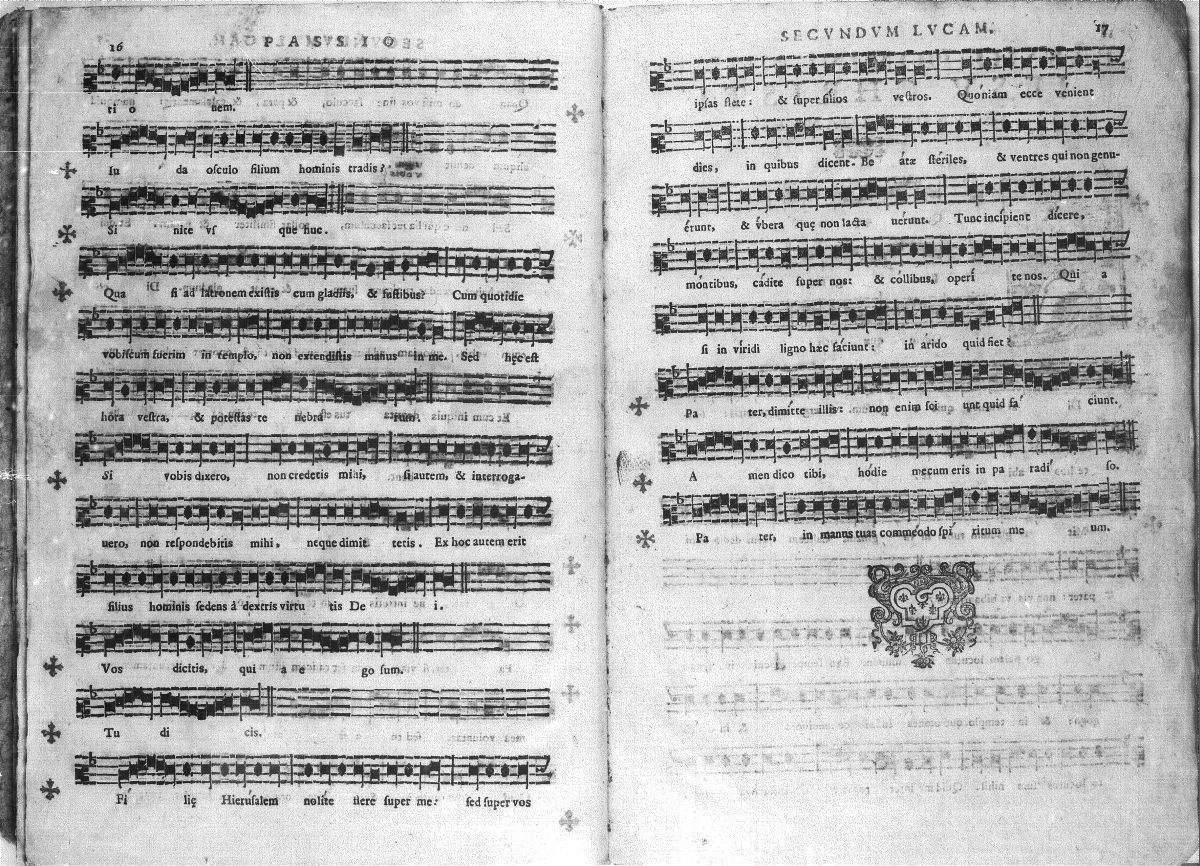 16
PASSIO
ti o nem.
Iu da osculo filium hominis tradis?
Si nite vs que huc.
Qua si ad latronem existis cum gladiis, & fustibus? Cum quotidie
vobiscum fuerim in templo, non extendistis manus in me. Sed hęc est
hora vestra, & potestas te nebra rum.
Si vobis dixero, non credetis mihi, si autem, & interroga-
uero, non respondebitis mihi, neque dimit tetis. Ex hoc autem erit
filius hominis sedens à dextris virtu tis De i.
Vos dicitis, qui a e go sum.
Tu di cis.
Fí lię Hierúsalem nolíte flere super me: sed super vos
SECVNDVM LVCAM.
17
ipsas flete: & super filios vestros. Quóniam ecce vénient
dies, in quibus dicent. Be átæ stériles, & ventres qui non genu-
érunt, & vbera quę non lacta uérunt. Tunc incípient dícere,
móntibus, cádite super nos: & collibus, operí te nos. Quí a
si in víridi ligno hæc fáciunt: in árido quid fiet?
Pa ter, dimitte illis: non enim sci unt quid fá ciunt.
A men dico tibi, hódie mecum eris in pa radí so.
Pa ter, in manus tuas comméndo spí ritum me um.